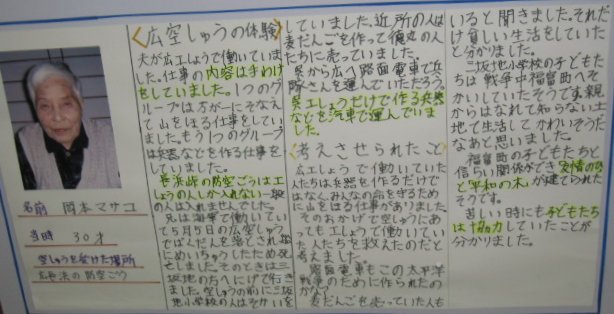 〈広空しゅうの体験〉
夫が広工しょうで働いていま
した。仕事の内容は手わけ
をしていました。1つのグ
ループは万が一にそなえ
て山をほる仕事がしてい
ました。もう1つのグループ
は兵器などを作る仕事を
していました。
長浜峠の防空ごうは工し
ょうの人しか入れない一般
の人は入れませんでした。
兄は海軍で働いてい
て5月5日の広空しゅう
でばくだんを落とされ
にめいちゅうしたため死
しました。そのときは三坂
地の方へにげて行き
ました。空しゅうの前に三坂
地小学校の人はそかいを
名前 岡本マサコ
当時 30才
空しゅうを受けた場所
の防空ごう
していました。近所の人は
麦だんごを作って僕丸の人
たちに売っていました。
呉から広へ路面電車で兵
隊さんを運んでいただろう。
呉工しょうだけで作る兵器
などを汽車で運んでいま
した。
〈考えさせられたこと〉
広工しょうで働いていた
人たちは兵器を作るだけで
はなくみんなの命を守るため
に山をほる仕事がありました。
そのおかげで空しゅうにあ
っても工しょうで働いてい
た人たちを救えたのだと
考えました。
路面電車もこの太平洋
戦争のために作られたの
かな?
麦だんごを売っていた人も
いると聞きました。それだ
け貧しい生活をしていた
と分かりました。
三坂地小学校の子どもた
ちは戦争中福富町へそ
かいしていたそうです。親
からはなれて知らない土
地で生活してかわいそうだ
なあと思いました。
福富町の子どもたちと
信らい関係ができ友情の
と平和の木が建てられた
そうです。
苦しい時にも子どもたち
は協力していたことが
分かりました。